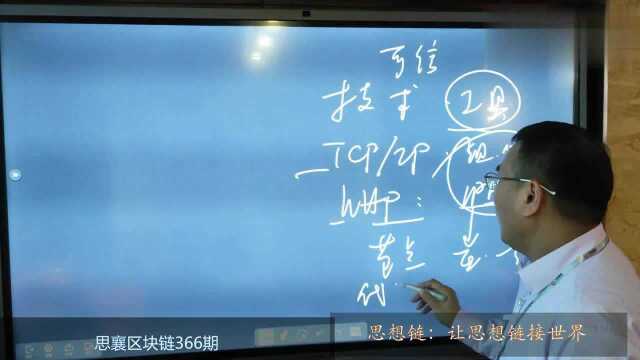 可信
技术 工具
TCP/IP:
WAP:
节点
代
思襄区块链366期
思想链：让思想链接世界